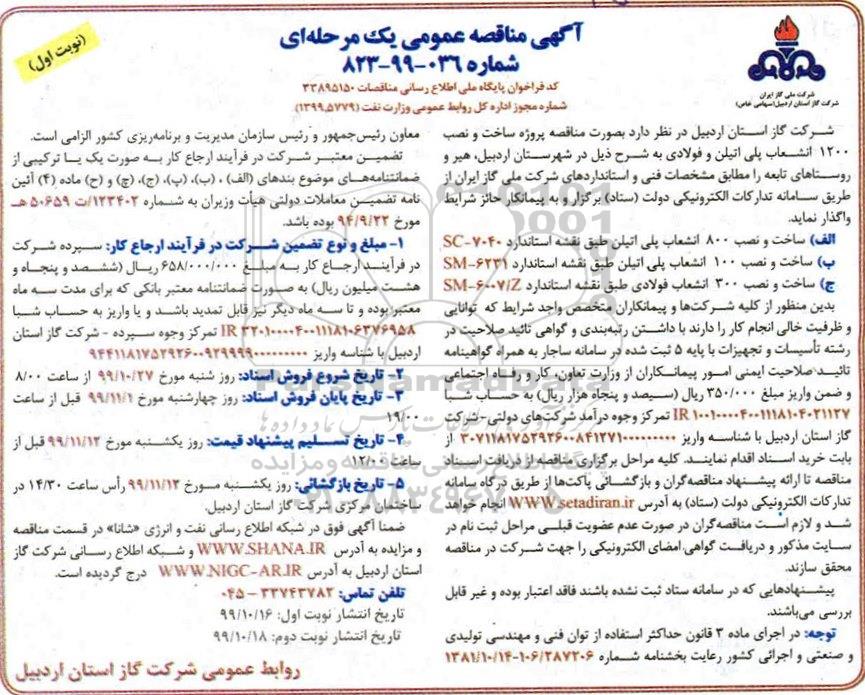 (نوبت اول)
آگهی مناقصه عمومی یک مرحله‌ای
شماره ۰۳۶-۹۹-۸۲۳
کد فراخوان پایگاه ملی اطلاع رسانی مناقصات ۳۳۸۹۵۱۵۰
شماره مجوز اداره کل روابط عمومی وزارت نفت (۱۳۹۹.۵۷۷۹)
شرکت ملی گاز ایران
شرکت گاز استان اردبیل(سهامی خاص)
شرکت گاز استان اردبیل در نظر دارد بصورت مناقصه پروژه ساخت و نصب
۱۲۰۰ انشعاب پلی اتیلن و فولادی به شرح ذیل در شهرستان اردبیل، هیر و
روستاهای تابعه را مطابق مشخصات فنی و استانداردهای شرکت ملی گاز ایران از
طریق سامانه تدارکات الکترونیکی دولت (ستاد) برگزار و به پیمانکار حائز شرایط
واگذار نماید.
الف) ساخت و نصب ۸۰۰ انشعاب پلی اتیلن طبق نقشه استاندارد SC-۷۰۴۰
ب) ساخت و نصب ۱۰۰ انشعاب پلی اتیلن طبق نقشه استاندارد SM-۶۲۳۱
ج) ساخت و نصب ۳۰۰ انشعاب فولادی طبق نقشه استاندارد SM-۶۰۰۷/Z
بدین منظور از کلیه شرکت‌ها و پیمانکاران متخصص واجد شرایط که توانایی
و ظرفیت خالی انجام کار را دارند با داشتن رتبه‌بندی و گواهی تائید صلاحیت در
رشته تأسیسات و تجهیزات با پایه ۵ ثبت شده در سامانه ساجار به همراه گواهینامه
تائید صلاحیت ایمنی امور پیمانکاران از وزارت تعاون، کار و رفاه اجتماعی
و ضمن واریز مبلغ ۳۵۰/۰۰۰ ریال (سیصد و پنجاه هزار ریال) به حساب شبا
IR ۱۰۰۱۰۰۰۰۴۰۰۱۱۱۸۱۰۴۰۲۱۱۲۷ تمرکز وجوه درآمد شرکت‌های دولتی-شرکت
گاز استان اردبیل با شناسه واریز ۳۰۷۱۱۸۱۷۵۲۹۲۶۰۰۸۴۱۲۷۱۰۰۰۰۰۰۰۰۰۰ از
بابت خرید اسناد اقدام نمایند. کلیه مراحل برگزاری مناقصه از دریافت اسناد
مناقصه تا ارائه پیشنهاد مناقصه‌گران و بازگشائی پاکت‌ها از طریق درگاه سامانه
تدارکات الکترونیکی دولت (ستاد) به آدرس WWW.setadiran.ir انجام خواهد
شد و لازم است مناقصه‌گران در صورت عدم عضویت قبلی مراحل ثبت نام در
سایت مذکور و دریافت گواهی امضای الکترونیکی را جهت شرکت در مناقصه
محقق سازند.
پیشنهادهایی که در سامانه ستاد ثبت نشده باشند فاقد اعتبار بوده و غیر قابل
بررسی می‌باشند.
توجه: در اجرای ماده ۳ قانون حداکثر استفاده از توان فنی و مهندسی تولیدی
و صنعتی و اجرائی کشور رعایت بخشنامه شماره ۱۰۶/۲۸۷۲۰۶-۱۳۸۱/۱۰/۱۴
معاون رئیس‌جمهور و رئیس سازمان مدیریت و برنامه‌ریزی کشور الزامی است.
تضمین معتبر شرکت در فرآیند ارجاع کار به صورت یک یا ترکیبی از
ضمانتنامه‌های موضوع بندهای (الف) ، (ب)، (پ)، (ج)، (چ) و (ح) ماده (۴) آئین
نامه تضمین معاملات دولتی هیأت وزیران به شماره ۱۲۳۴۰۲/ت ۵۰۶۵۹ هـ
مورخ ۹۴/۹/۲۲ بوده باشد.
۱- مبلغ و نوع تضمین شرکت در فرآیند ارجاع کار: سپرده شرکت
در فرآیند ارجاع کار به مبلغ ۶۵۸/۰۰۰/۰۰۰ ریال (ششصد و پنجاه و
هشت میلیون ریال) به صورت ضمانتنامه معتبر بانکی که برای مدت سه ماه
معتبر بوده و تا سه ماه دیگر نیز قابل تمدید باشد و یا واریز به حساب شبا
IR ۳۲۰۱۰۰۰۰۴۰۰۱۱۱۸۱۰۶۳۷۶۹۵۸ تمرکز وجوه سپرده - شرکت گاز استان
اردبیل با شناسه واریز ۹۴۴۱۱۸۱۷۵۲۹۲۶۰۰۹۲۹۹۹۹۰۰۰۰۰۰۰۰۰۰
۲- تاریخ شروع فروش اسناد: روز شنبه مورخ ۹۹/۱۰/۲۷ از ساعت ۸/۰۰
۳- تاریخ پایان فروش اسناد: روز چهارشنبه مورخ ۹۹/۱۱/۱ قبل از ساعت
۱۹/۰۰
۴- تاریخ تسلیم پیشنهاد قیمت: روز یکشنبه مورخ ۹۹/۱۱/۱۲ قبل از
ساعت ۱۲/۰۰
۵- تاریخ بازگشائی: روز یکشنبه مورخ ۹۹/۱۱/۱۲ رأس ساعت ۱۴/۳۰ در
ساختمان مرکزی شرکت گاز استان اردبیل.
ضمنا آگهی فوق در شبکه اطلاع رسانی نفت و انرژی «شانا» در قسمت مناقصه
و مزایده به آدرس WWW.SHANA.IR و شبکه اطلاع رسانی شرکت گاز
استان اردبیل به آدرس WWW.NIGC-AR.IR درج گردیده است.
تلفن تماس: ۳۳۷۴۳۷۸۲ - ۰۴۵
تاریخ انتشار نوبت اول: ۹۹/۱۰/۱۶
تاریخ انتشار نوبت دوم: ۹۹/۱۰/۱۸
روابط عمومی شرکت گاز استان اردبیل